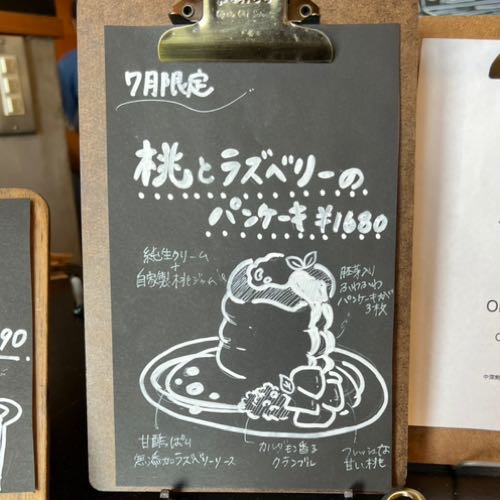 7月限定
桃とラズベリーの
パンケーキ ¥1680
純生クリーム
+
自家製桃ジャム
胚芽入り
ふわふわ
パンケーキが
3枚
甘酸っぱい
無添加ラズベリーソース
カルダモン香る
クランブル
フレッシュな
甘い桃
90